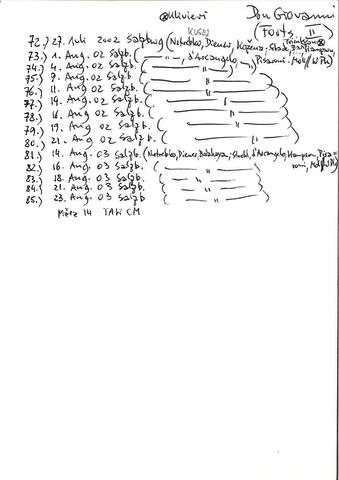 Ulivieri
Don Giovanni
(Forts. II
KUSEJ
72.) 27. Juli 2002 Salzburg (Netrebko, Diener, Kožena, Skov
73.) 1. Aug. 02 Salzb. ( — " —, d'Arcangelo — " —, Pisaroni,
74.) 4. Aug. 02 Salzb. ( "
75.) 9. Aug. 02 Salzb. ( "
76.) 11. Aug. 02 Salzb. ( "
77.) 14. Aug. 02 Salzb. ( "
78.) 16. Aug 02 Salzb. ( "
79.) 19. Aug 02 Salzb. ( "
80.) 21. Aug 02 Salzb. ( "
81.) 14. Aug. 03 Salzb. (Netrebko, Diener, d'Arcangelo, Hampson, Pisa-
82.) 16. Aug. 03 Salzb. ( " roni,
83.) 18. Aug. 03 Salzb. ( "
84.) 21. Aug. 03 Salzb. ( "
85.) 23. Aug. 03 Salzb. ( "
März 14 TAW CM